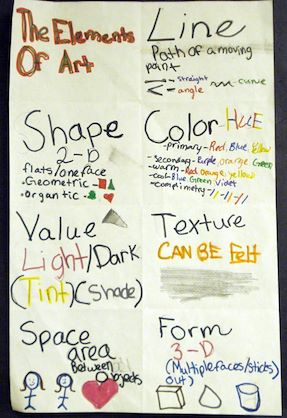 The Elements
Of Art
Line
Path of a moving
point
- straight
- curve
- angle
Shape
2-D
flats/one face
• Geometric -
• Organtic -
Color HUE
- primary - Red, Blue, Yellow
- Secondary - Purple, orange Green
- warm - Red orange, yellow
- cool - Blue Green Violet
- Complimetry -
Value
Light/Dark
(Tint)(Shade)
Texture
CAN BE Felt
Space
area
Between
Objects
Form
3-D
(Multiple faces/sticks
out)